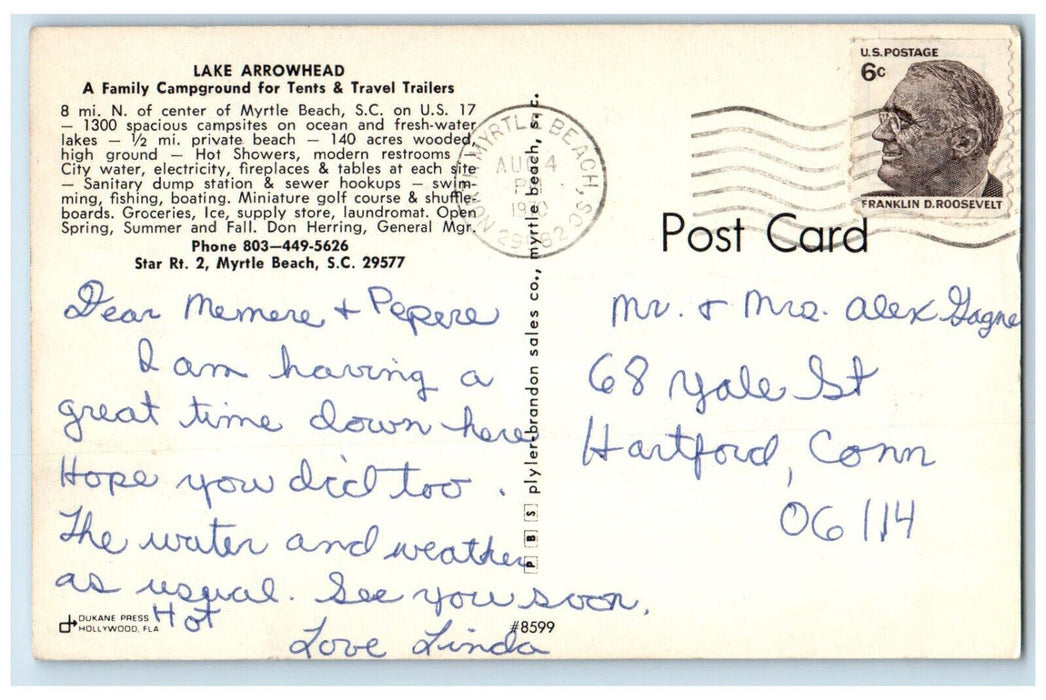 LAKE ARROWHEAD
A Family Campground for Tents & Travel Trailers
8 mi. N. of center of Myrtle Beach, S.C. on U.S. 17
— 1300 spacious campsites on ocean and fresh-water
lakes — ½ mi. private beach — 140 acres wooded,
high ground — Hot Showers, modern restrooms —
City water, electricity, fireplaces & tables at each site
— Sanitary dump station & sewer hookups — swim-
ming, fishing, boating. Miniature golf course & shuffle-
boards. Groceries, Ice, supply store, laundromat. Open
Spring, Summer and Fall. Don Herring, General Mgr.
Phone 803—449-5626
Star Rt. 2, Myrtle Beach, S.C. 29577
Dear Memere + Pepere
I am having a
great time down here
Hope you did too.
The water and weather
as usual. See you soon,
Hot
Love Linda
DUKANE PRESS
HOLLYWOOD, FLA
#8599
P B S plyler-brandon sales co., myrtle beach, s.c.
NORTH MYRTLE BEACH, SC
AUG 4
PM
29582
U.S. POSTAGE
6c
FRANKLIN D. ROOSEVELT
Post Card
Mr. & Mrs. Alex Gagne
68 Yale St
Hartford, Conn
06114